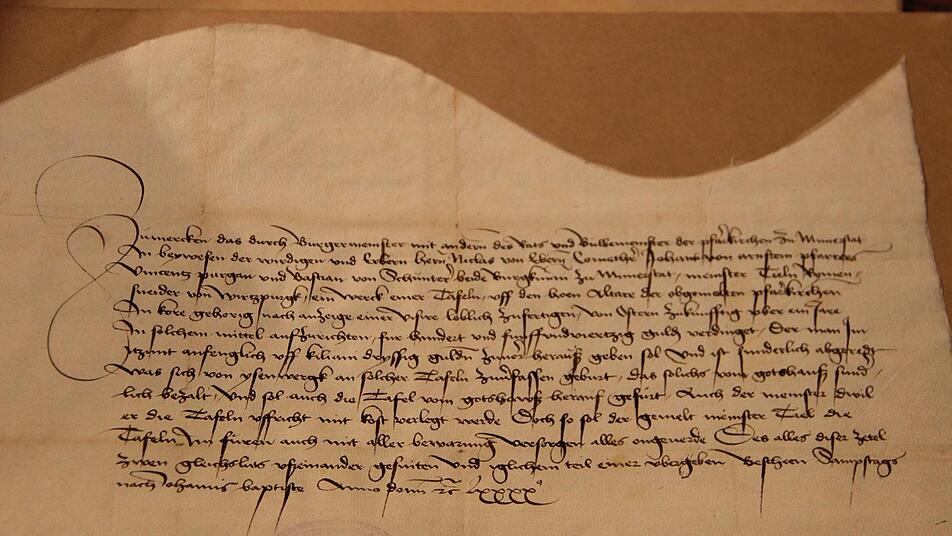 Zumercken das durch Burgermeinster mit andern des Rats und Buwemeinster der pfarrkirchen zu Munerstat
In beywesen der wirdigen und Erbern hern Niclas von Comethur Johans von arnstein pfarrers
Vincentz purgan und Bastian von beide zu Munerstat, meinster Tiln Rymen-
sneider von Wirtzpurgk, ein werck einer Tafeln, uff den hoen Altare der obgemelten pfarrkirchen
In kore gehorig, nach anzeige einer visire loblich zufertigen, von Ostern zukunfftig uber ein Jare
In solchem mittel auffzurichten, fur hundert und funffundviertzig guldn verdinget, Der man Im
Itzunt anfenglich uff kiliani dreyssig guldn herauß geben sol Und ist sunderlich abgeredt
Was sich von ysenwergk an solcher Tafeln zuuerfassen geburt, das solichs vom gotshauß sund-
lich bezalt, Und sol auch die Tafel vom gotshawß herauf gefurt, Auch der meinster dwil
er die Tafeln uffricht mit kost verlegt werde Doch so sol der gemelt meinster Tiel die
Tafeln Im furen auch mit aller bewarung versorgen alles ongeuerde Des alles diser zetel
zwen gleichsluts ußeinander gesniten Und iglichem teil einer ubergeben Bescheen Sampstags
nach Johannis baptiste Anno domi &c LXXXX°